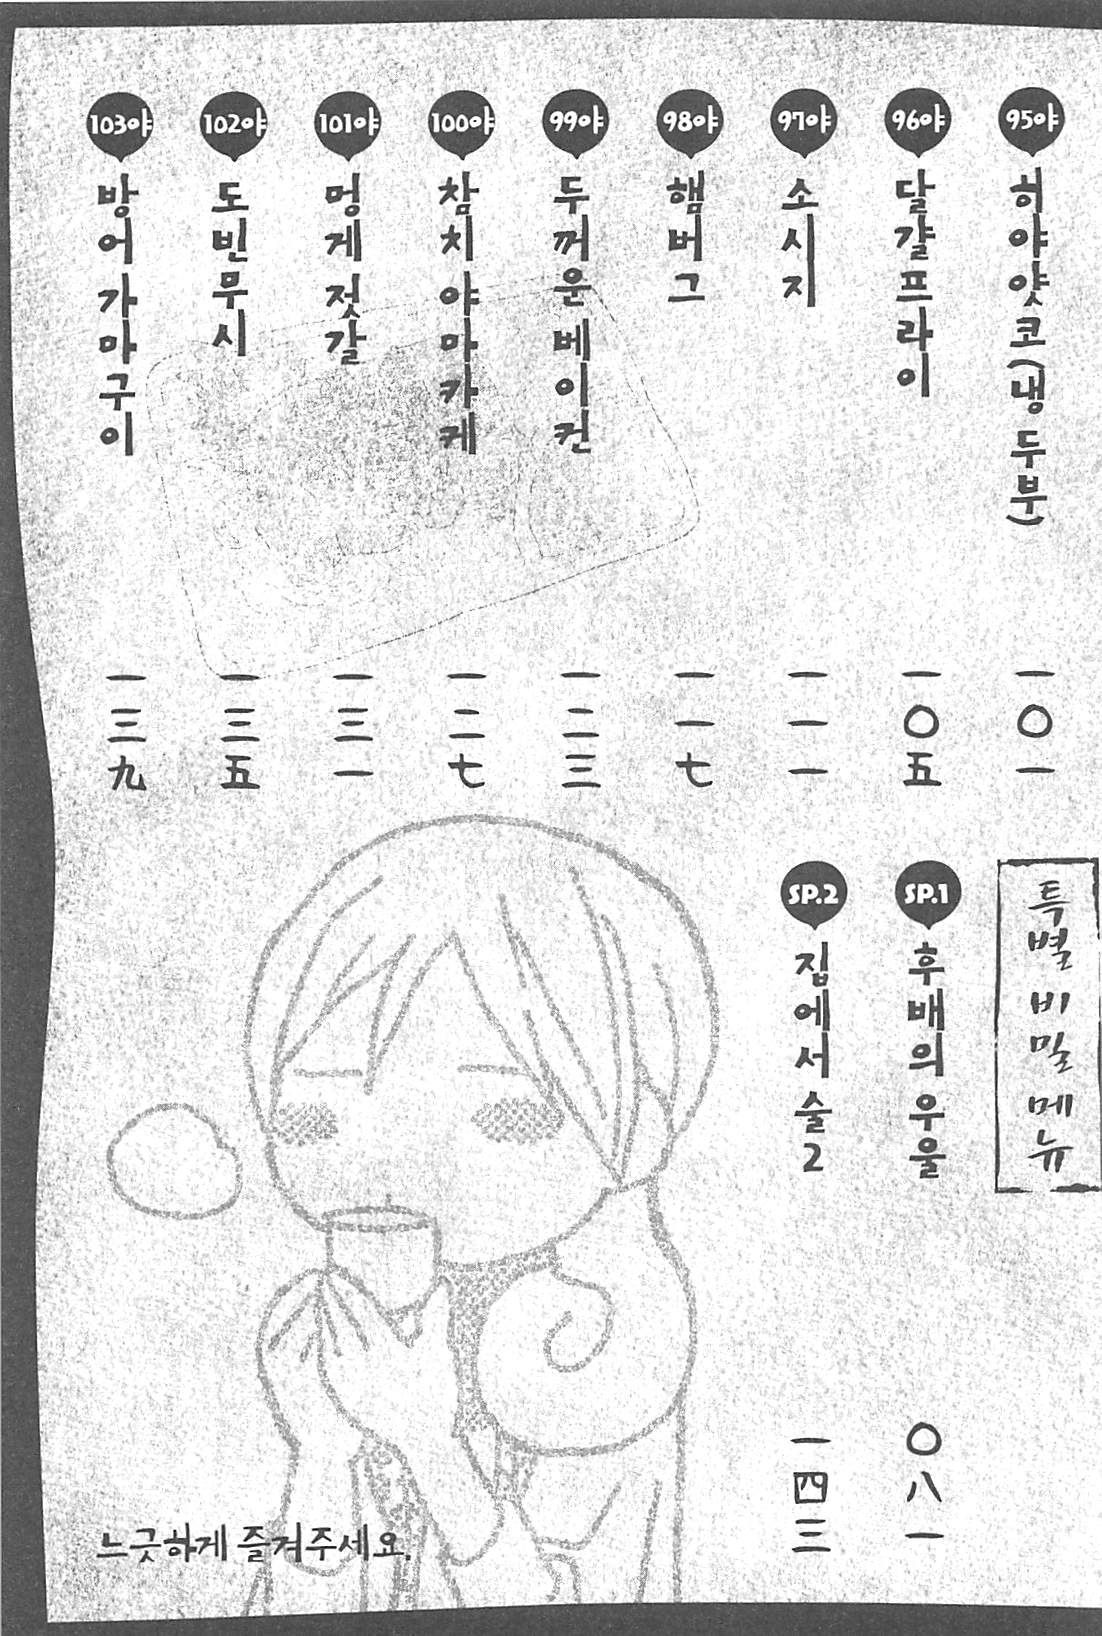 95야 히야얏코(냉 두부) 一〇一
96야 달걀프라이 一〇五
97야 소시지 一一一
98야 햄버그 一一七
99야 두꺼운 베이컨 一二三
100야 참치 야마카케 一二七
101야 멍게 젓갈 一三一
102야 도빈무시 一三五
103야 방어 가마구이 一三九
특별 비밀 메뉴
SP.1 후배의 우울 〇八一
SP.2 집에서 술 2 一四三
느긋하게 즐겨주세요.